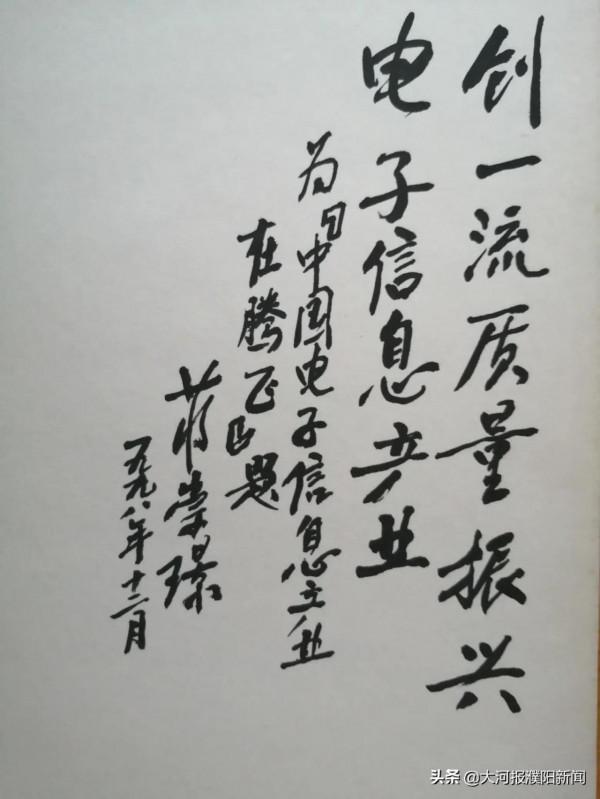 创一流质量振兴
电子信息产业
为『中国电子信息产业
在腾飞』题
蒋崇璟
一九九八年十二月
头条 @大河报濮阳新闻